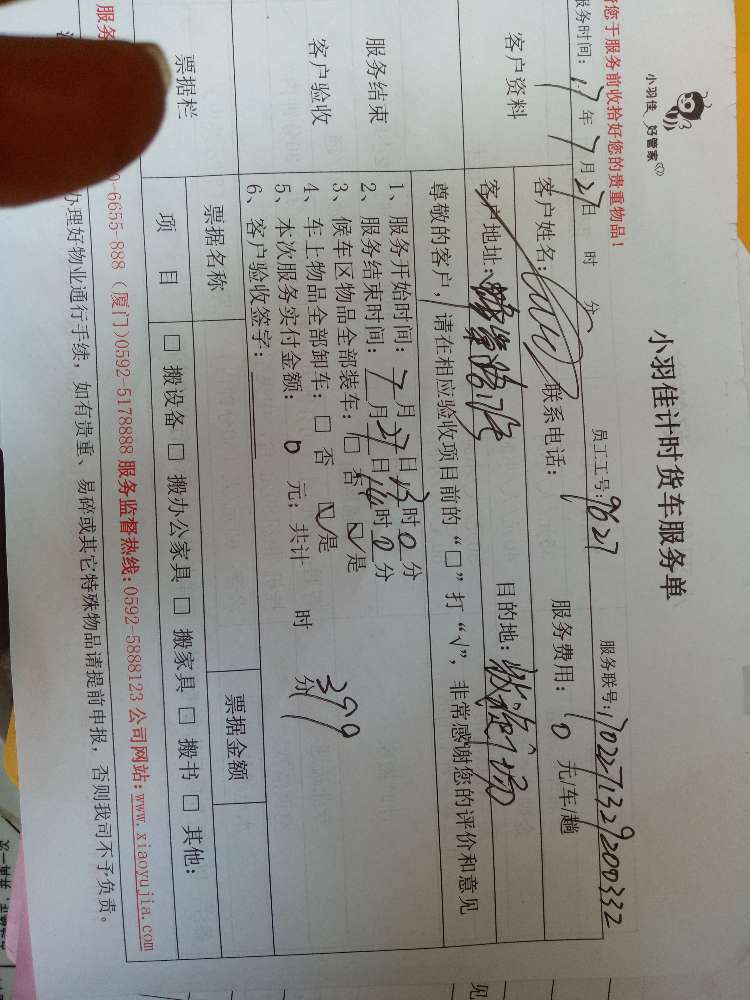 小羽佳 好管家
小羽佳计时货车服务单
好您于服务前收拾好您的贵重物品!
服务时间: 17年7月27日 时 分 员工工号: 9627 服务联号:
客户资料
客户姓名: 联系电话: 服务费用: 0 元/车/趟
客户地址: 目的地:
尊敬的客户,请在相应验收项目前的“□”打“√”,非常感谢您的评价和意见
服务结束
客户验收
1、服务开始时间: 7月27日13时0分
2、服务结束时间: 7月27日16时0分
3、候车区物品全部装车: □ 否 ☑是
4、车上物品全部卸车: □ 否 ☑是
5、本次服务实付金额: 0 元; 共计 时 分 399
6、客户验收签字:
票据栏
票据名称 票据金额
项 目 □ 搬设备 □ 搬办公家具 □ 搬家具 □ 搬书 □ 其他:
服务
0-6655-888 (厦门)0592-5178888 服务监督热线:0592-5888123 公司网站:www.xiaoyujia.com
办理好物业通行手续,如有贵重、易碎或其它特殊物品请提前申报,否则我司不予负责。
见